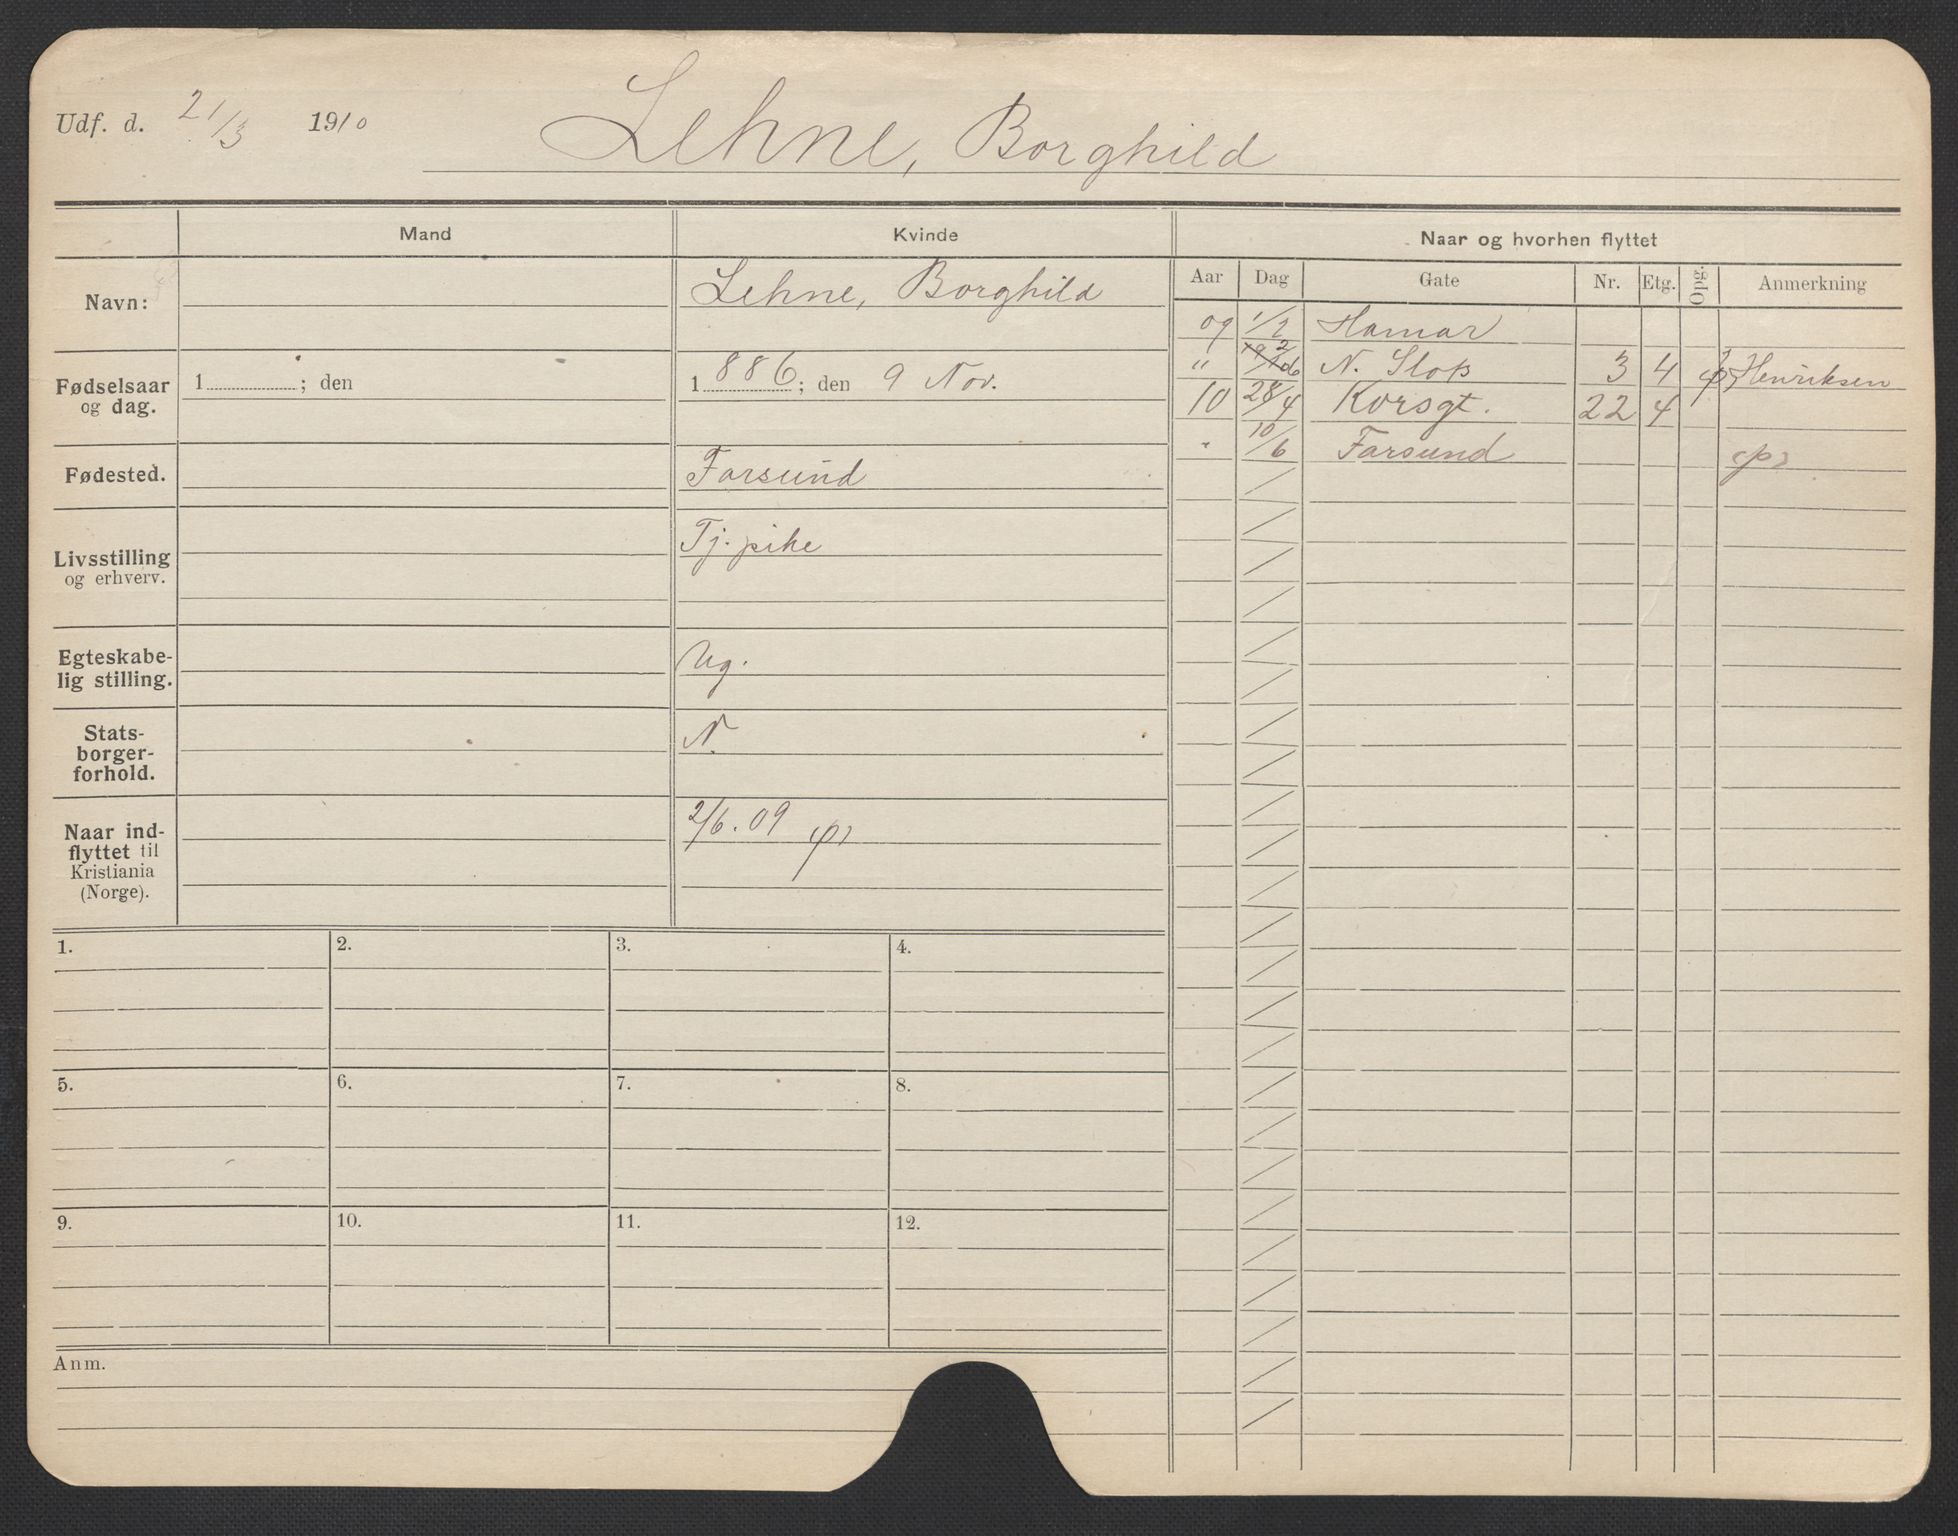 Udf. d. 21/3 1910 Lehne, Borghild
Mand Kvinde Naar og hvorhen flyttet
Aar Dag Gate Nr. Etg. Opg. Anmerkning
Navn: Lehne, Borghild
Fødselsaar og dag. 1 ; den 1886; den 9 Nov.
Fødested. Farsund
Livsstilling og erhverv. Tj. pike
Egteskabe-
lig stilling. Ug.
Stats-
borger-
forhold. N.
Naar ind-
flyttet til
Kristiania
(Norge). 2/6. 09
09 1/2 Hamar
" N. Slots 3 4 Henriksen
10 28/4 Korsgt. 22 4
" 10/6 Farsund
1. 2. 3. 4.
5. 6. 7. 8.
9. 10. 11. 12.
Anm.